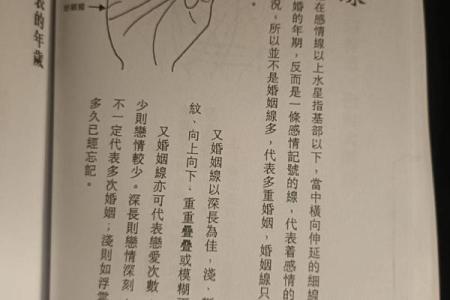 在感情線以上水星指基部以下，當中橫向伸延的細線
婚的年期，反而是一條感情記號的線，代表着感情的
況，所以並不是婚姻線多，代表多重婚姻，婚姻線只
。
又婚姻線以深長為佳，淺、
紋、向上向下、重重疊疊或模糊不
又婚姻線亦可代表戀愛次數
少則戀情較少。深長則戀情深刻
不一定代表多次婚姻；淺則如浮雲
多久已經忘記。
表的年歲